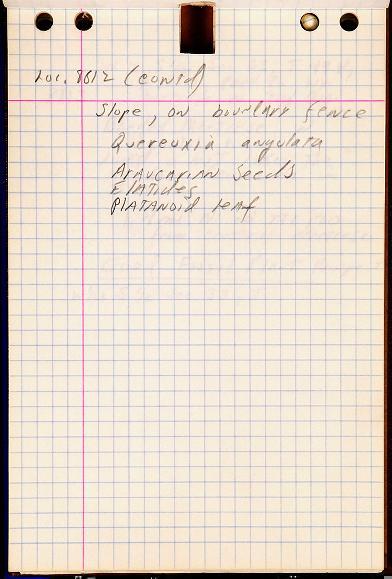 Loc. 9612 (contd)
Slope, on boundary fence
Quereuxia angulata
Araucarian seeds
Elatides
Platanoid leaf